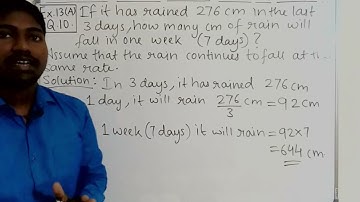 Ex.13(A) If it has rained 276 cm in the last
Q.10. 3 days, how many cm of rain will
fall in one week (7 days)?
Assume that the rain continues to fall at
same rate.
Solution: In 3 days, it has rained 276 cm
1 day, it will rain 276/3 cm = 92 cm
1 week (7 days) it will rain = 92×7
= 644 cm